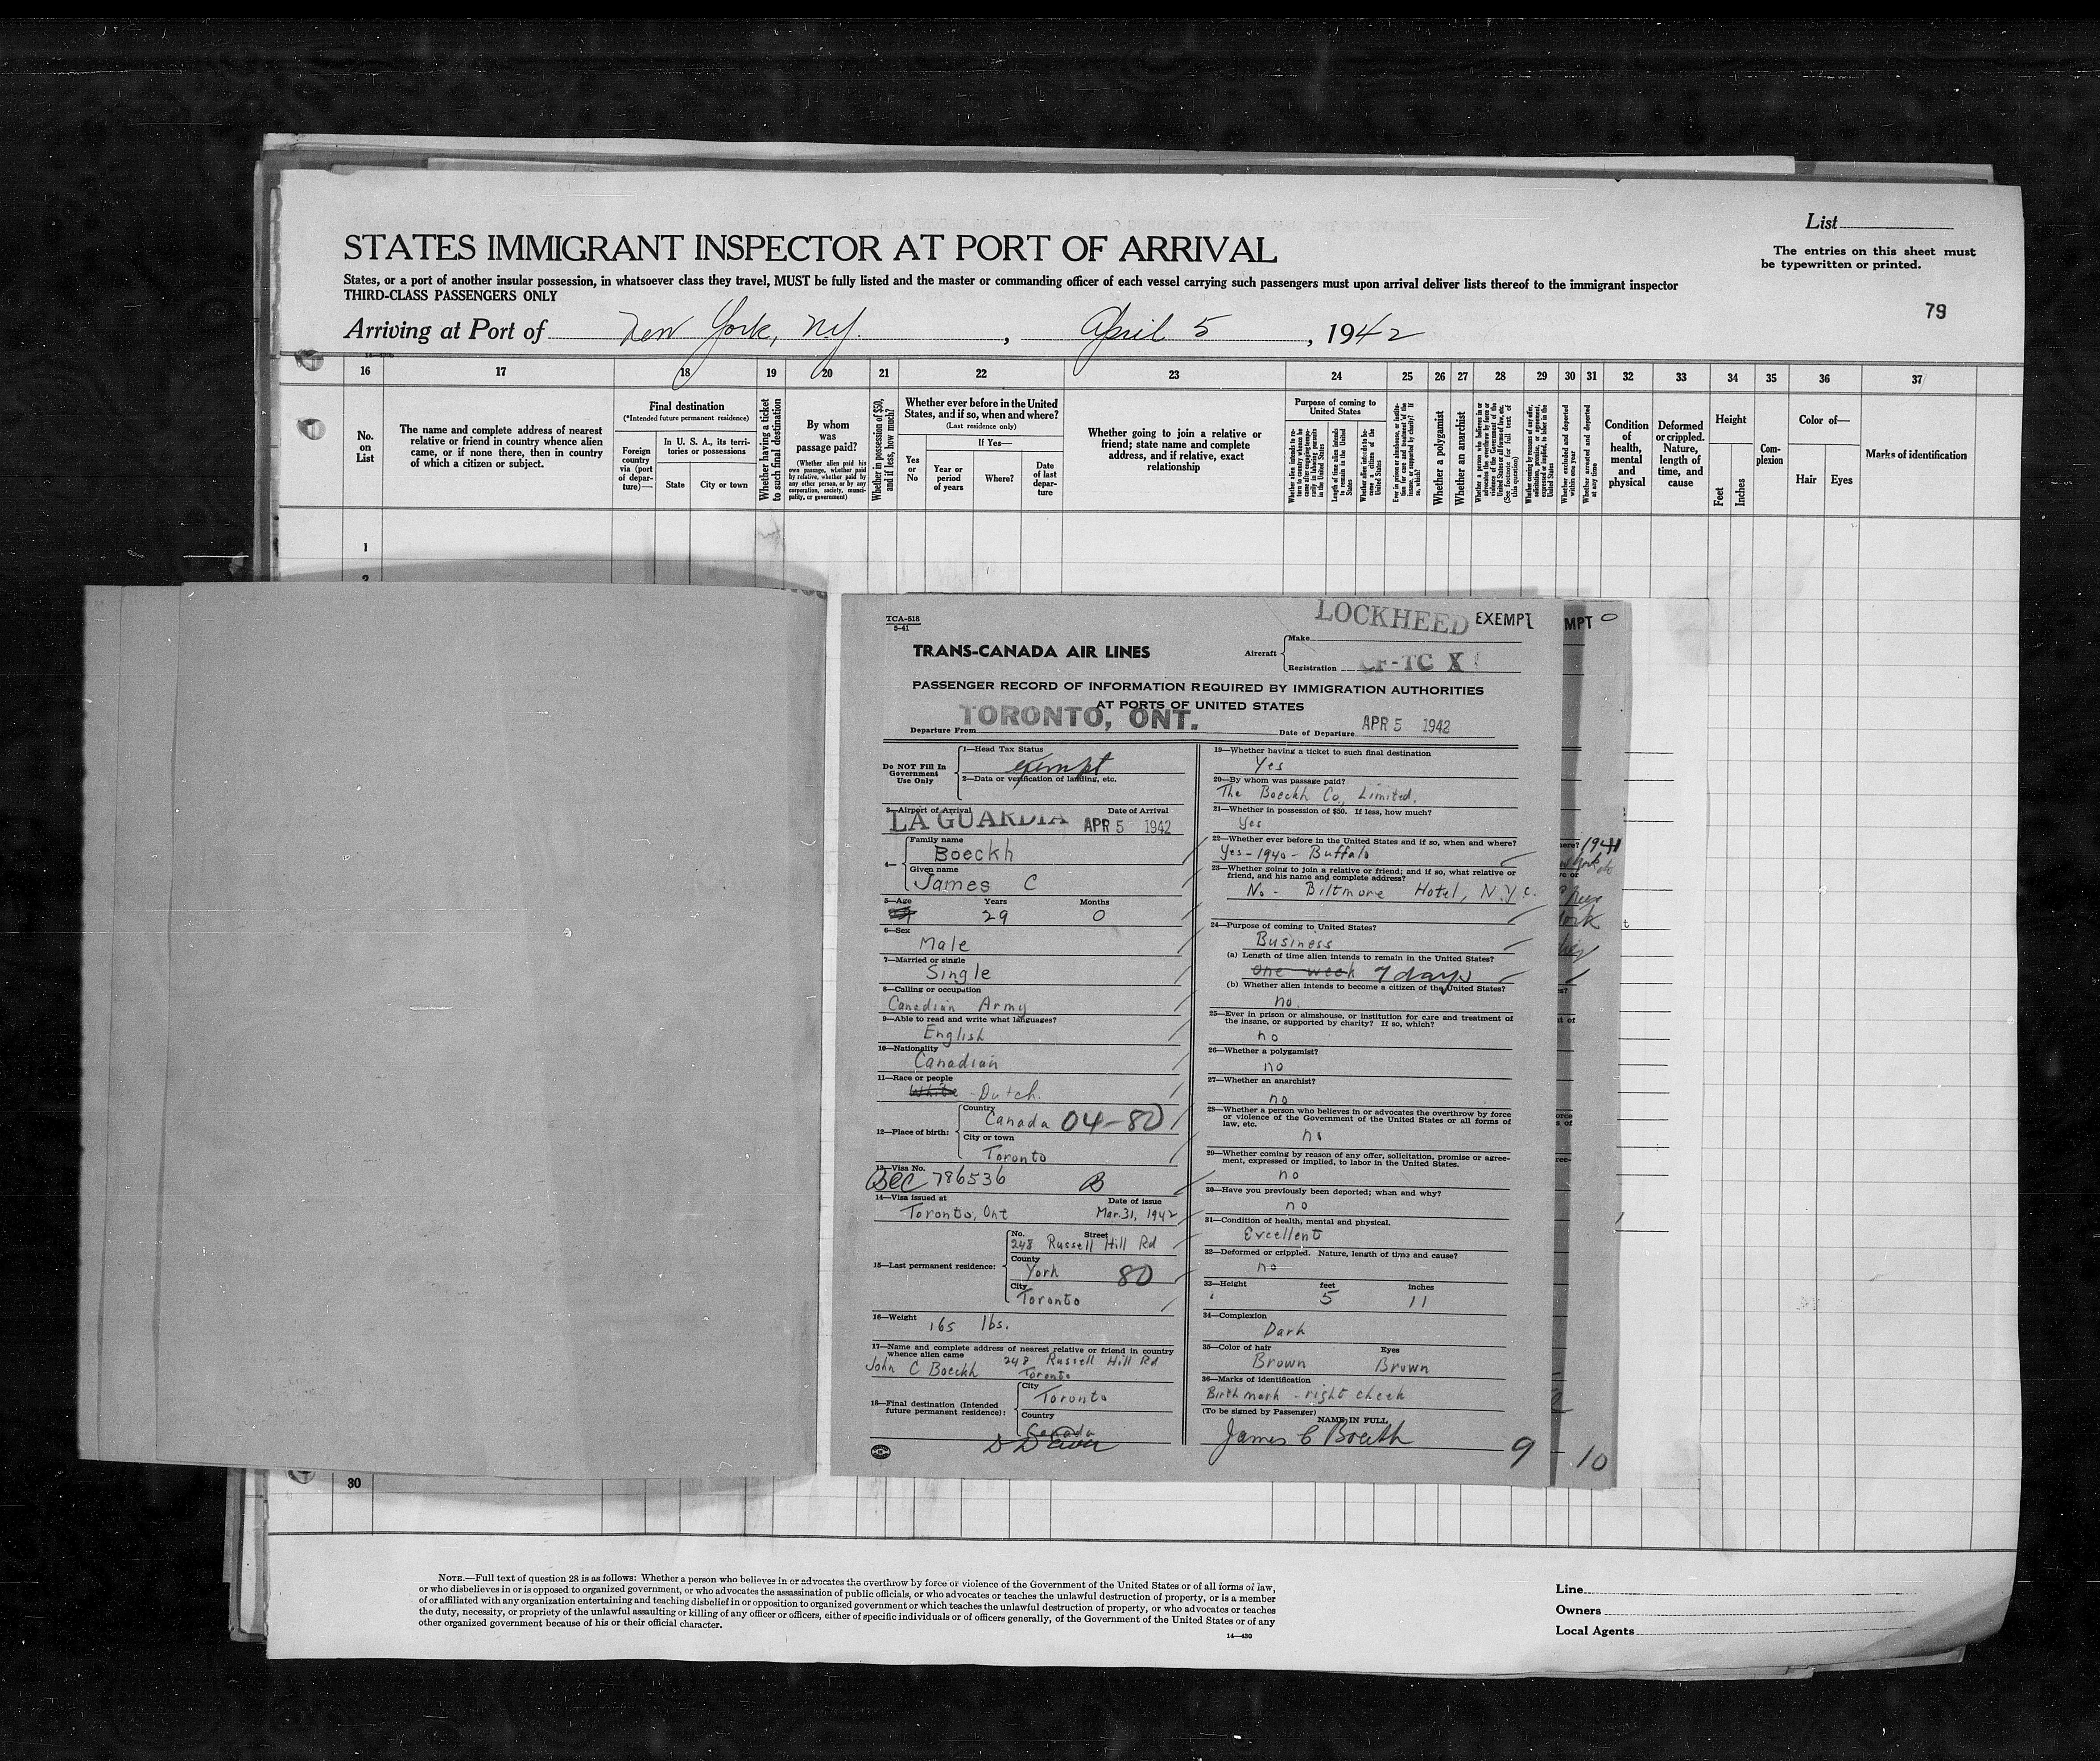 List
The entries on this sheet must
be typewritten or printed.
79
STATES IMMIGRANT INSPECTOR AT PORT OF ARRIVAL
States, or a port of another insular possession, in whatsoever class they travel, MUST be fully listed and the master or commanding officer of each vessel carrying such passengers must upon arrival deliver lists thereof to the immigrant inspector
THIRD-CLASS PASSENGERS ONLY
Arriving at Port of New York, N.Y. , April 5 , 1942
16 17 18 19 20 21 22 23 24 25 26 27 28 29 30 31 32 33 34 35 36 37
No. on List
The name and complete address of nearest relative or friend in country whence alien came, or if none there, then in country of which a citizen or subject.
Final destination
(*Intended future permanent residence)
Foreign country via (port of departure)—
In U. S. A., its territories or possessions
State
City or town
Whether having a ticket to such final destination
By whom was passage paid?
(Whether alien paid his own passage, whether paid by relative, whether paid by any other person, or by any corporation, society, municipality, or government)
Whether in possession of $50, and if less, how much?
Whether ever before in the United States, and if so, when and where?
(Last residence only)
Yes or No
If Yes—
Year or period of years
Where?
Date of last departure
Whether going to join a relative or friend; state name and complete address, and if relative, exact relationship
Purpose of coming to United States
Whether a polygamist
Whether an anarchist
Condition of health, mental and physical
Deformed or crippled. Nature, length of time, and cause
Height
Feet
Inches
Complexion
Color of—
Hair
Eyes
Marks of identification
1
2
TCA-518
5-41
LOCKHEED EXEMPT
TRANS-CANADA AIR LINES
Aircraft
Make
Registration CF-TC X
PASSENGER RECORD OF INFORMATION REQUIRED BY IMMIGRATION AUTHORITIES
AT PORTS OF UNITED STATES
Departure From TORONTO, ONT. Date of Departure APR 5 1942
Do NOT Fill In Government Use Only
1—Head Tax Status
exempt
2—Data or verification of landing, etc.
3—Airport of Arrival Date of Arrival
LA GUARDIA APR 5 1942
4— Family name
Boeckh
Given name
James C
5—Age Years Months
29 0
6—Sex
Male
7—Married or single
Single
8—Calling or occupation
Canadian Army
9—Able to read and write what languages?
English
10—Nationality
Canadian
11—Race or people
White - Dutch.
12—Place of birth:
Country
Canada 04-80
City or town
Toronto
13—Visa No.
BCC 786536 B
14—Visa issued at Date of issue
Toronto, Ont Mar. 31, 1942
15—Last permanent residence:
No. Street
248 Russell Hill Rd
County
York 80
City
Toronto
16—Weight
165 lbs.
17—Name and complete address of nearest relative or friend in country
whence alien came
John C Boeckh 248 Russell Hill Rd
Toronto
18—Final destination (Intended
future permanent residence):
City
Toronto
Country
Canada
19—Whether having a ticket to such final destination
Yes
20—By whom was passage paid?
The Boeckh Co, Limited.
21—Whether in possession of $50. If less, how much?
Yes
22—Whether ever before in the United States and if so, when and where?
Yes - 1940 - Buffalo
23—Whether going to join a relative or friend; and if so, what relative or
friend, and his name and complete address?
No - Biltmore Hotel, N.Y.C.
24—Purpose of coming to United States?
Business
(a) Length of time alien intends to remain in the United States?
One week 7 days
(b) Whether alien intends to become a citizen of the United States?
no.
25—Ever in prison or almshouse, or institution for care and treatment of
the insane, or supported by charity? If so, which?
no
26—Whether a polygamist?
no
27—Whether an anarchist?
no
28—Whether a person who believes in or advocates the overthrow by force
or violence of the Government of the United States or all forms of
law, etc.
no
29—Whether coming by reason of any offer, solicitation, promise or agree-
ment, expressed or implied, to labor in the United States.
no
30—Have you previously been deported; when and why?
no
31—Condition of health, mental and physical.
Excellent
32—Deformed or crippled. Nature, length of time and cause?
no
33—Height feet inches
5 11
34—Complexion
Dark
35—Color of hair Eyes
Brown Brown
36—Marks of identification
Birth mark - right cheek
(To be signed by Passenger)
NAME IN FULL
James C Boeckh
9
MPT
1941
ork
10
30
NOTE.—Full text of question 28 is as follows: Whether a person who believes in or advocates the overthrow by force or violence of the Government of the United States or of all forms of law,
or who disbelieves in or is opposed to organized government, or who advocates the assassination of public officials, or who advocates or teaches the unlawful destruction of property, or is a member
of or affiliated with any organization entertaining and teaching disbelief in or opposition to organized government or which teaches the unlawful destruction of property, or who advocates or teaches
the duty, necessity, or propriety of the unlawful assaulting or killing of any officer or officers, either of specific individuals or of officers generally, of the Government of the United States or of any
other organized government because of his or their official character.
14—430
Line
Owners
Local Agents